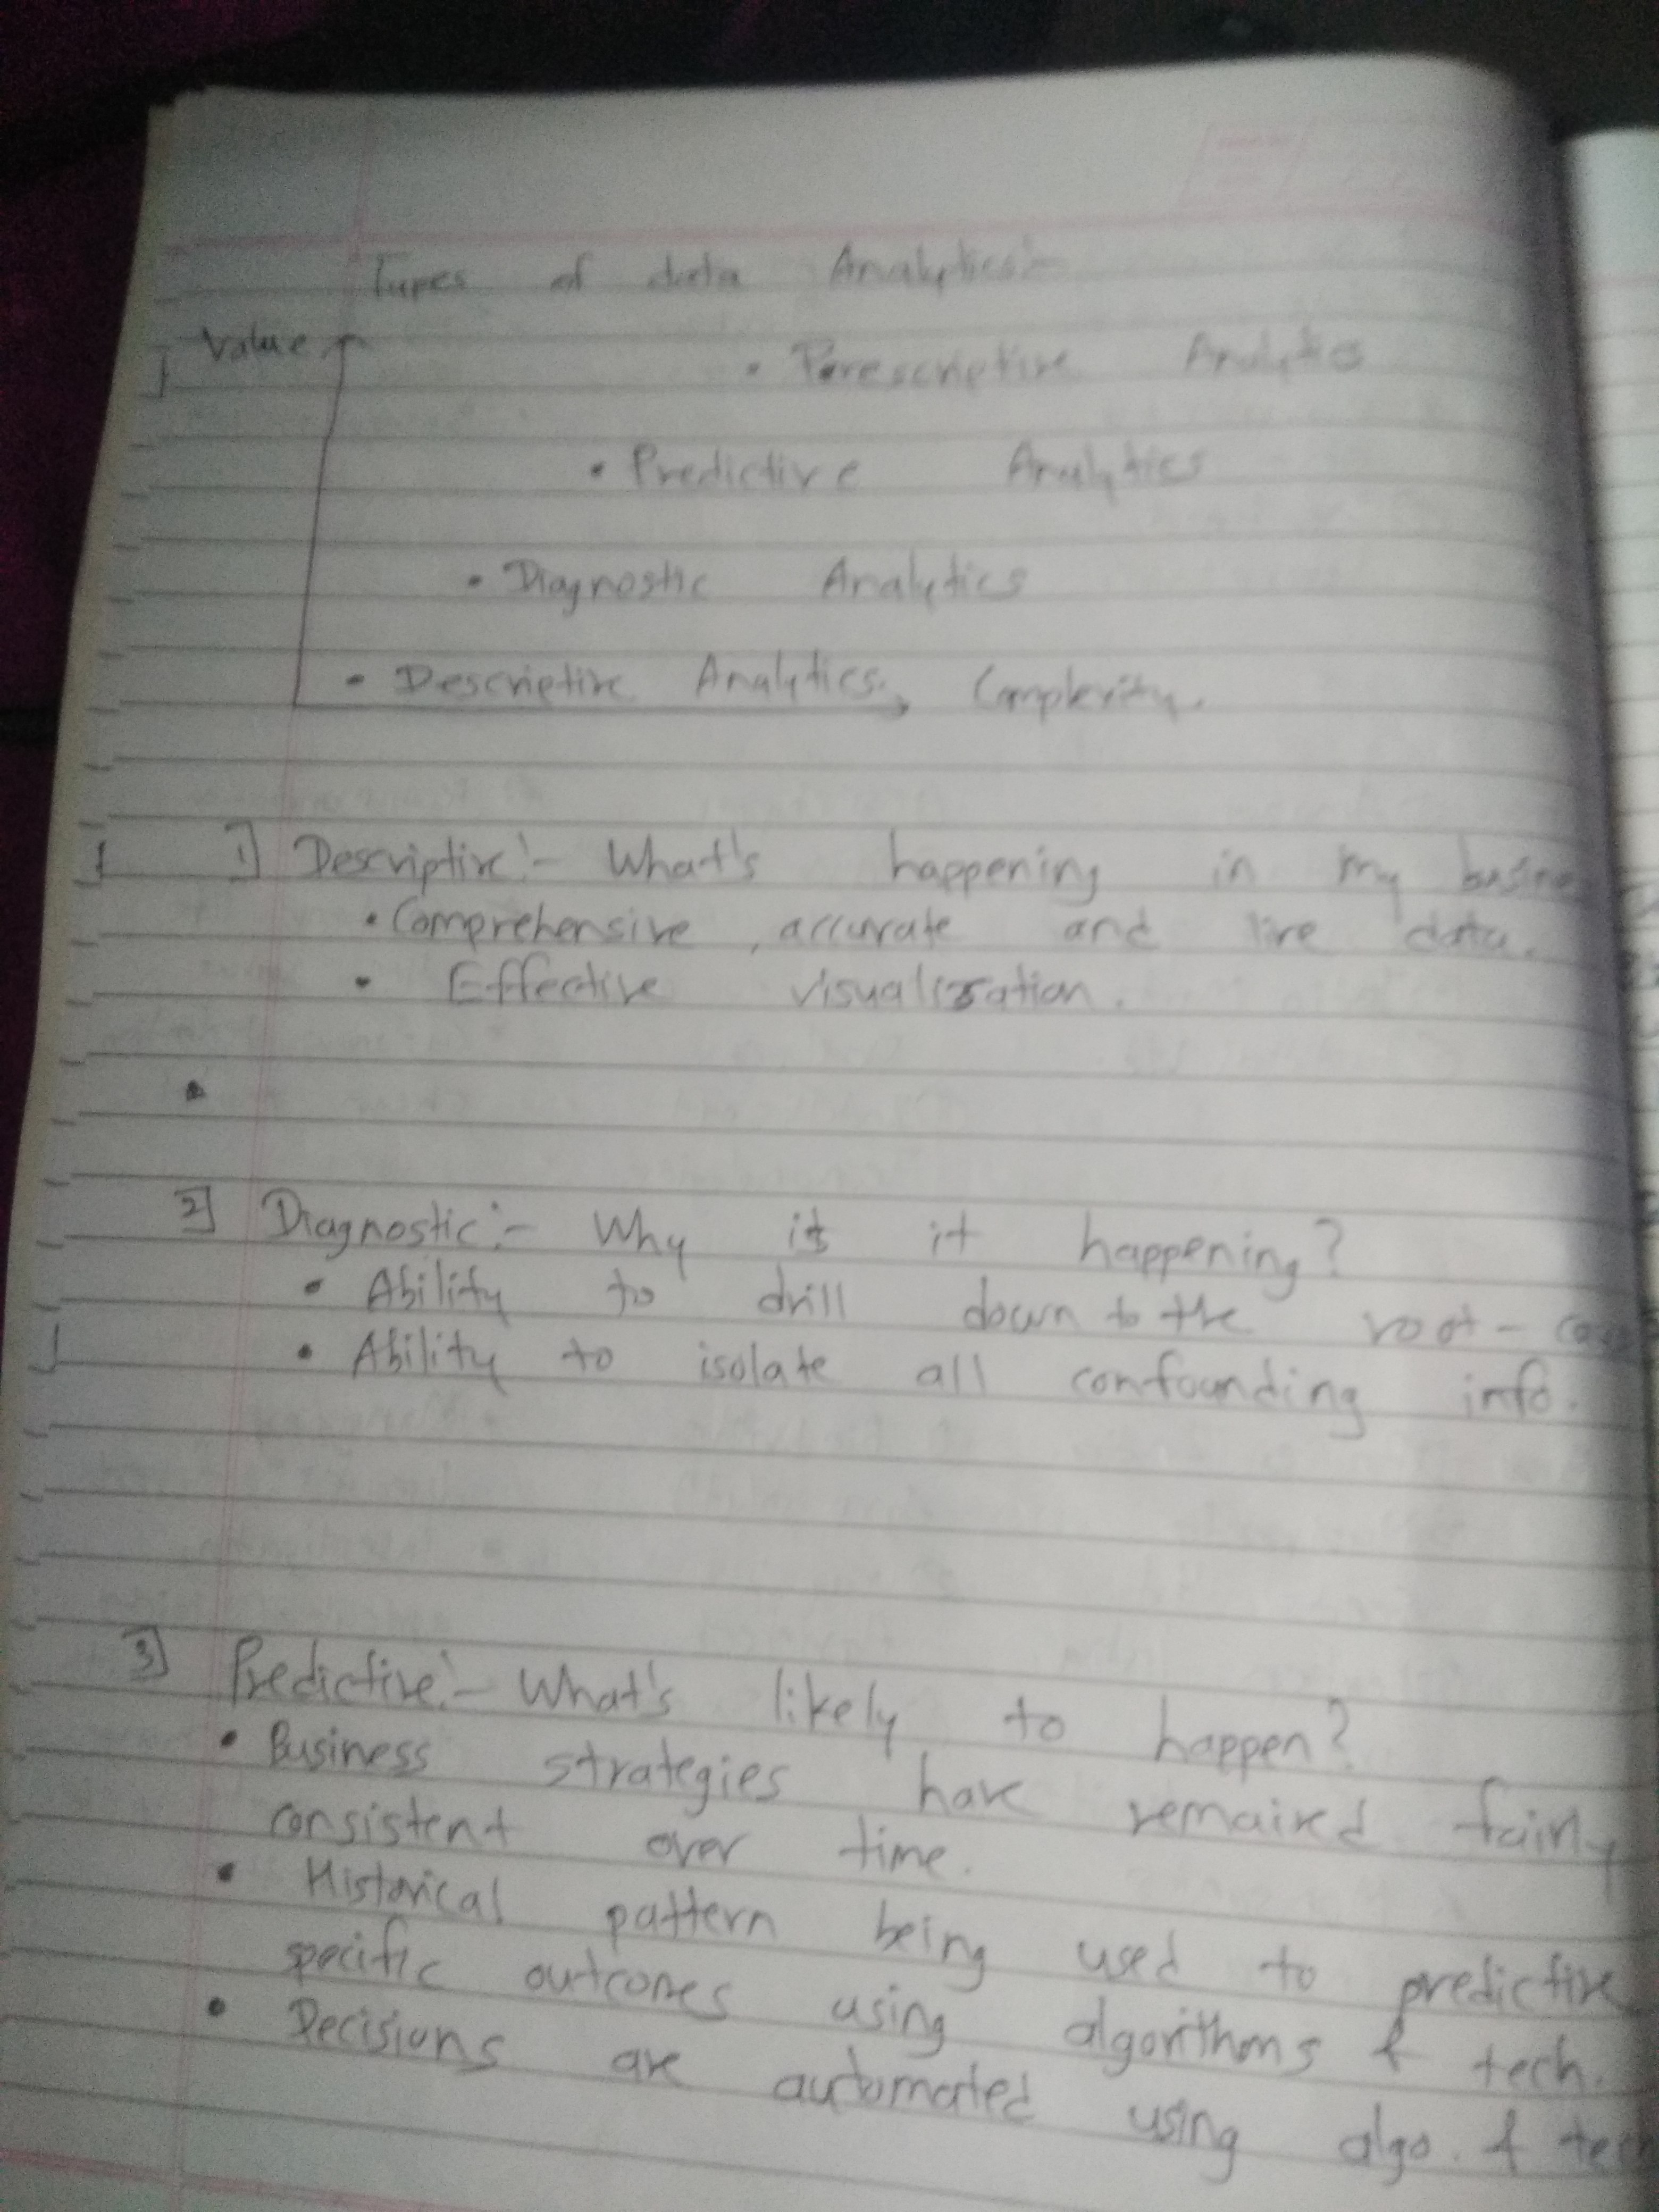 Types of data Analytics:-
Value
• Prescriptive Analytics
• Predictive Analytics
• Diagnostic Analytics
• Descriptive Analytics. Complexity.
1] Descriptive:- What's happening in my
• Comprehensive, accurate and live data.
• Effective visualization.
2] Diagnostic:- Why is it happening?
• Ability to drill down to the root-
• Ability to isolate all confounding info.
3] Predictive:- What's likely to happen?
• Business strategies have remained fairly
consistent over time.
• Historical pattern being used to predictive
specific outcomes using algorithms & tech.
• Decisions are automated using algo. & tech